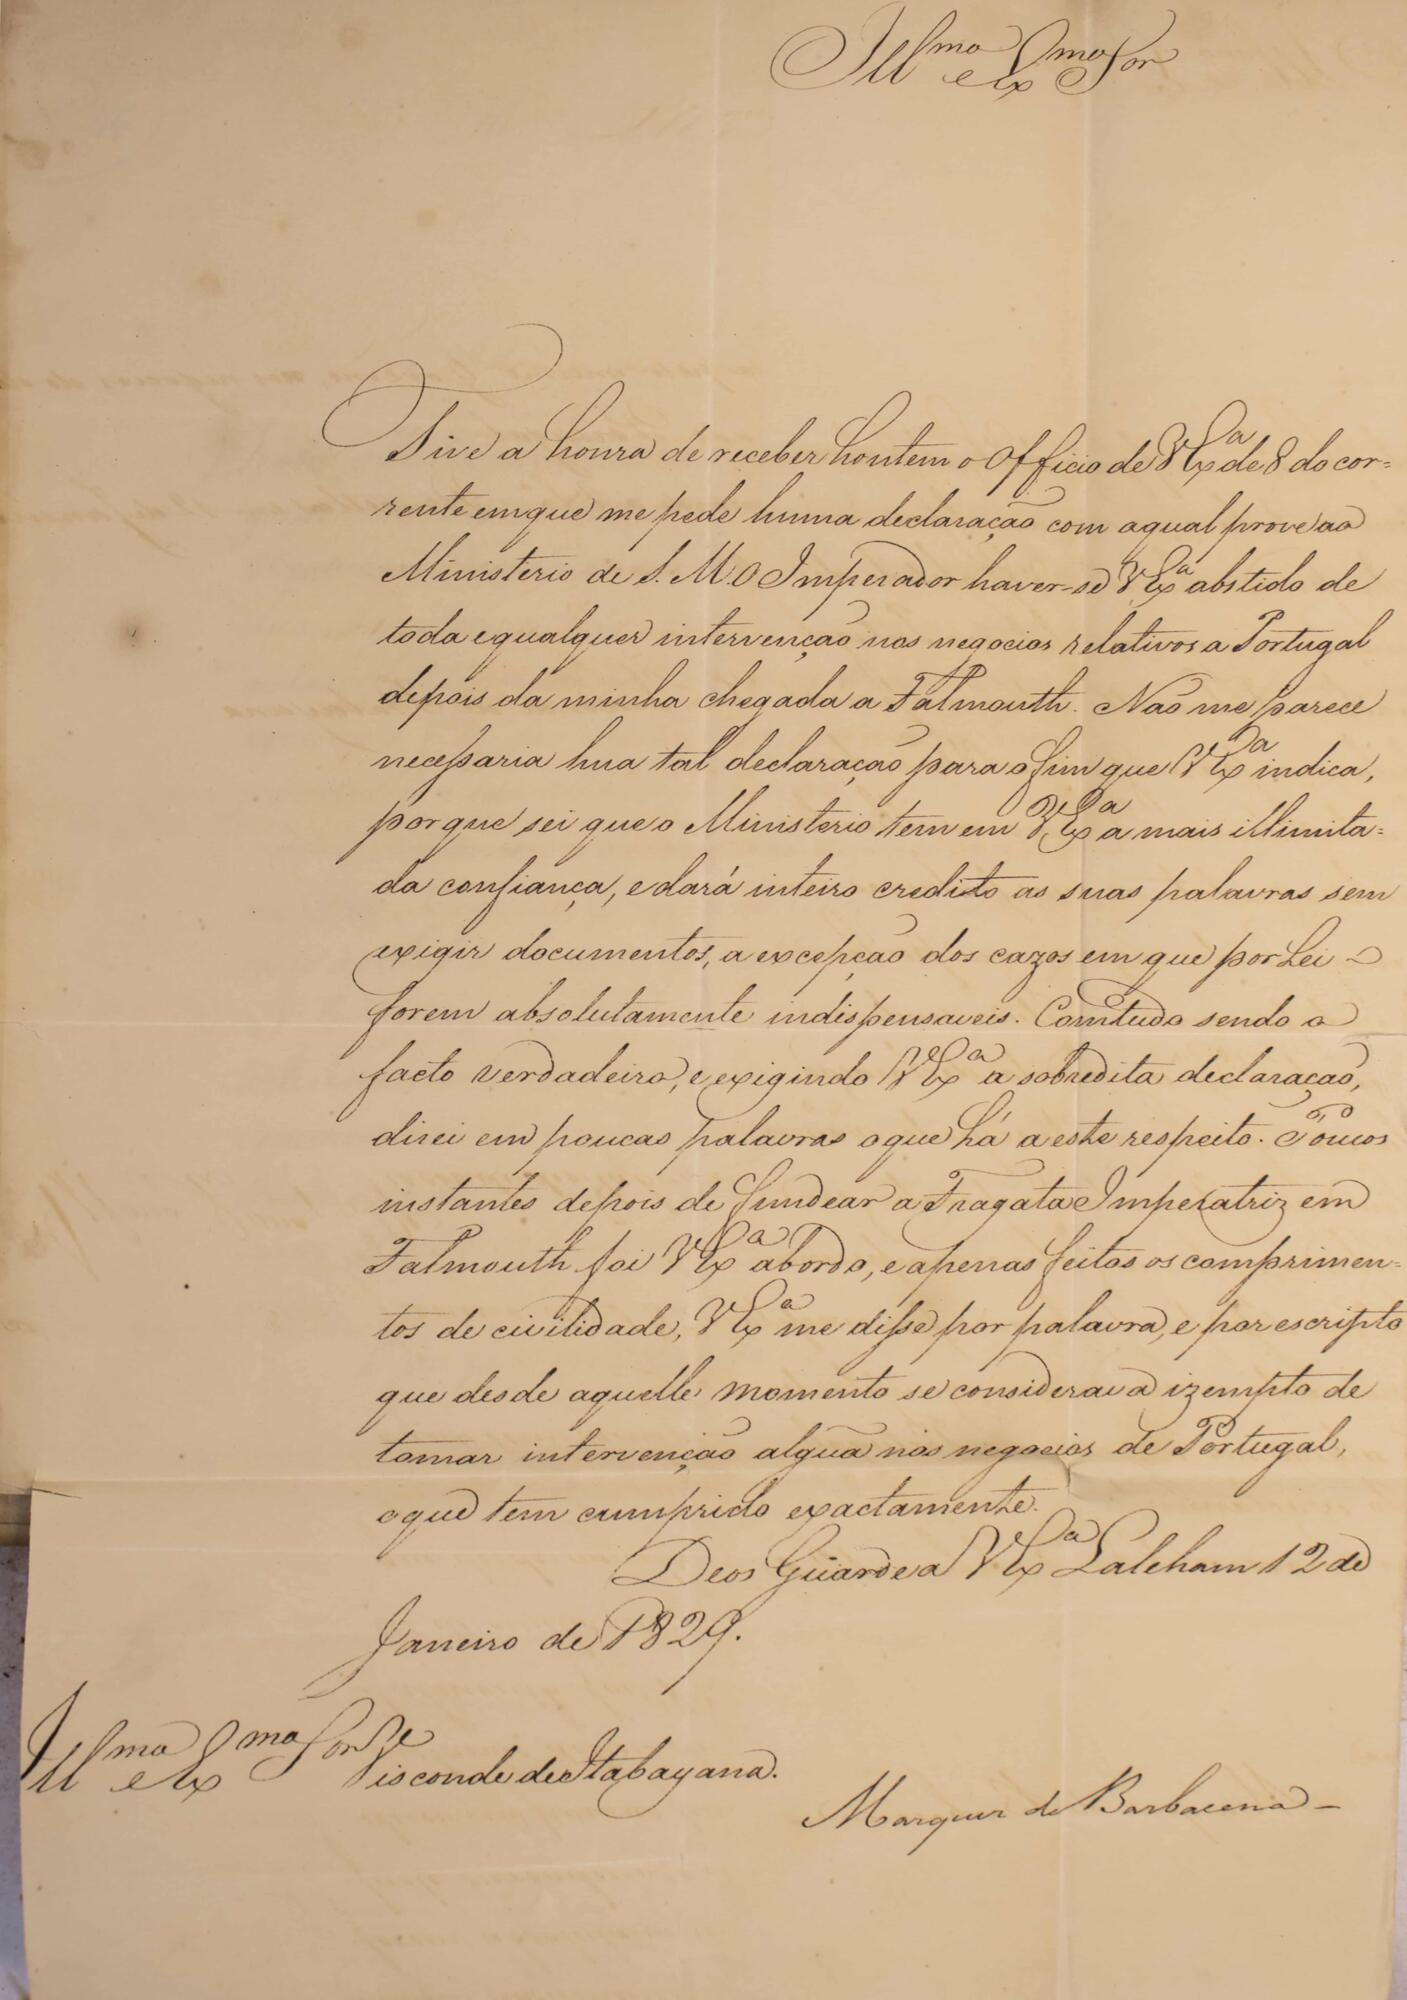 Ill.mo e Ex.mo Sor
Tive a honra de receber hontem o Officio de VEx.a de 8 do cor=
rente em que me pede huma declaração com a qual prove ao
Ministerio de S. M. O Imperador haver-se VEx.a abstido de
toda e qualquer intervenção nos negocios relativos a Portugal
depois da minha chegada a Falmouth. Não me parece
necessaria hua tal declaração para o fim que VEx.a indica,
porque sei que o Ministerio tem em VEx.a a mais illimita=
da confiança, e dará inteiro credito as suas palavras sem
exigir documentos, a excepção dos cazos em que por Lei
forem absolutamente indispensaveis. Comtudo sendo o
facto verdadeiro, e exigindo VEx.a a sobredita declaração,
direi em poucas palavras o que há a este respeito. Poucos
instantes depois de fundear a Fragata Imperatriz em
Falmouth foi VEx.a abordo, e apenas feitos os comprimen=
tos de civilidade, VEx.a me disse por palavra, e por escripto
que desde aquelle momento se considerava izempto de
tomar intervenção algũa nos negocios de Portugal,
o que tem cumprido exactamente.
Deos Guarde a VEx.a Laleham 12 de
Janeiro de 1829.
Ill.mo e Ex.mo Sor Visconde de Itabayana.
Marquez de Barbacena